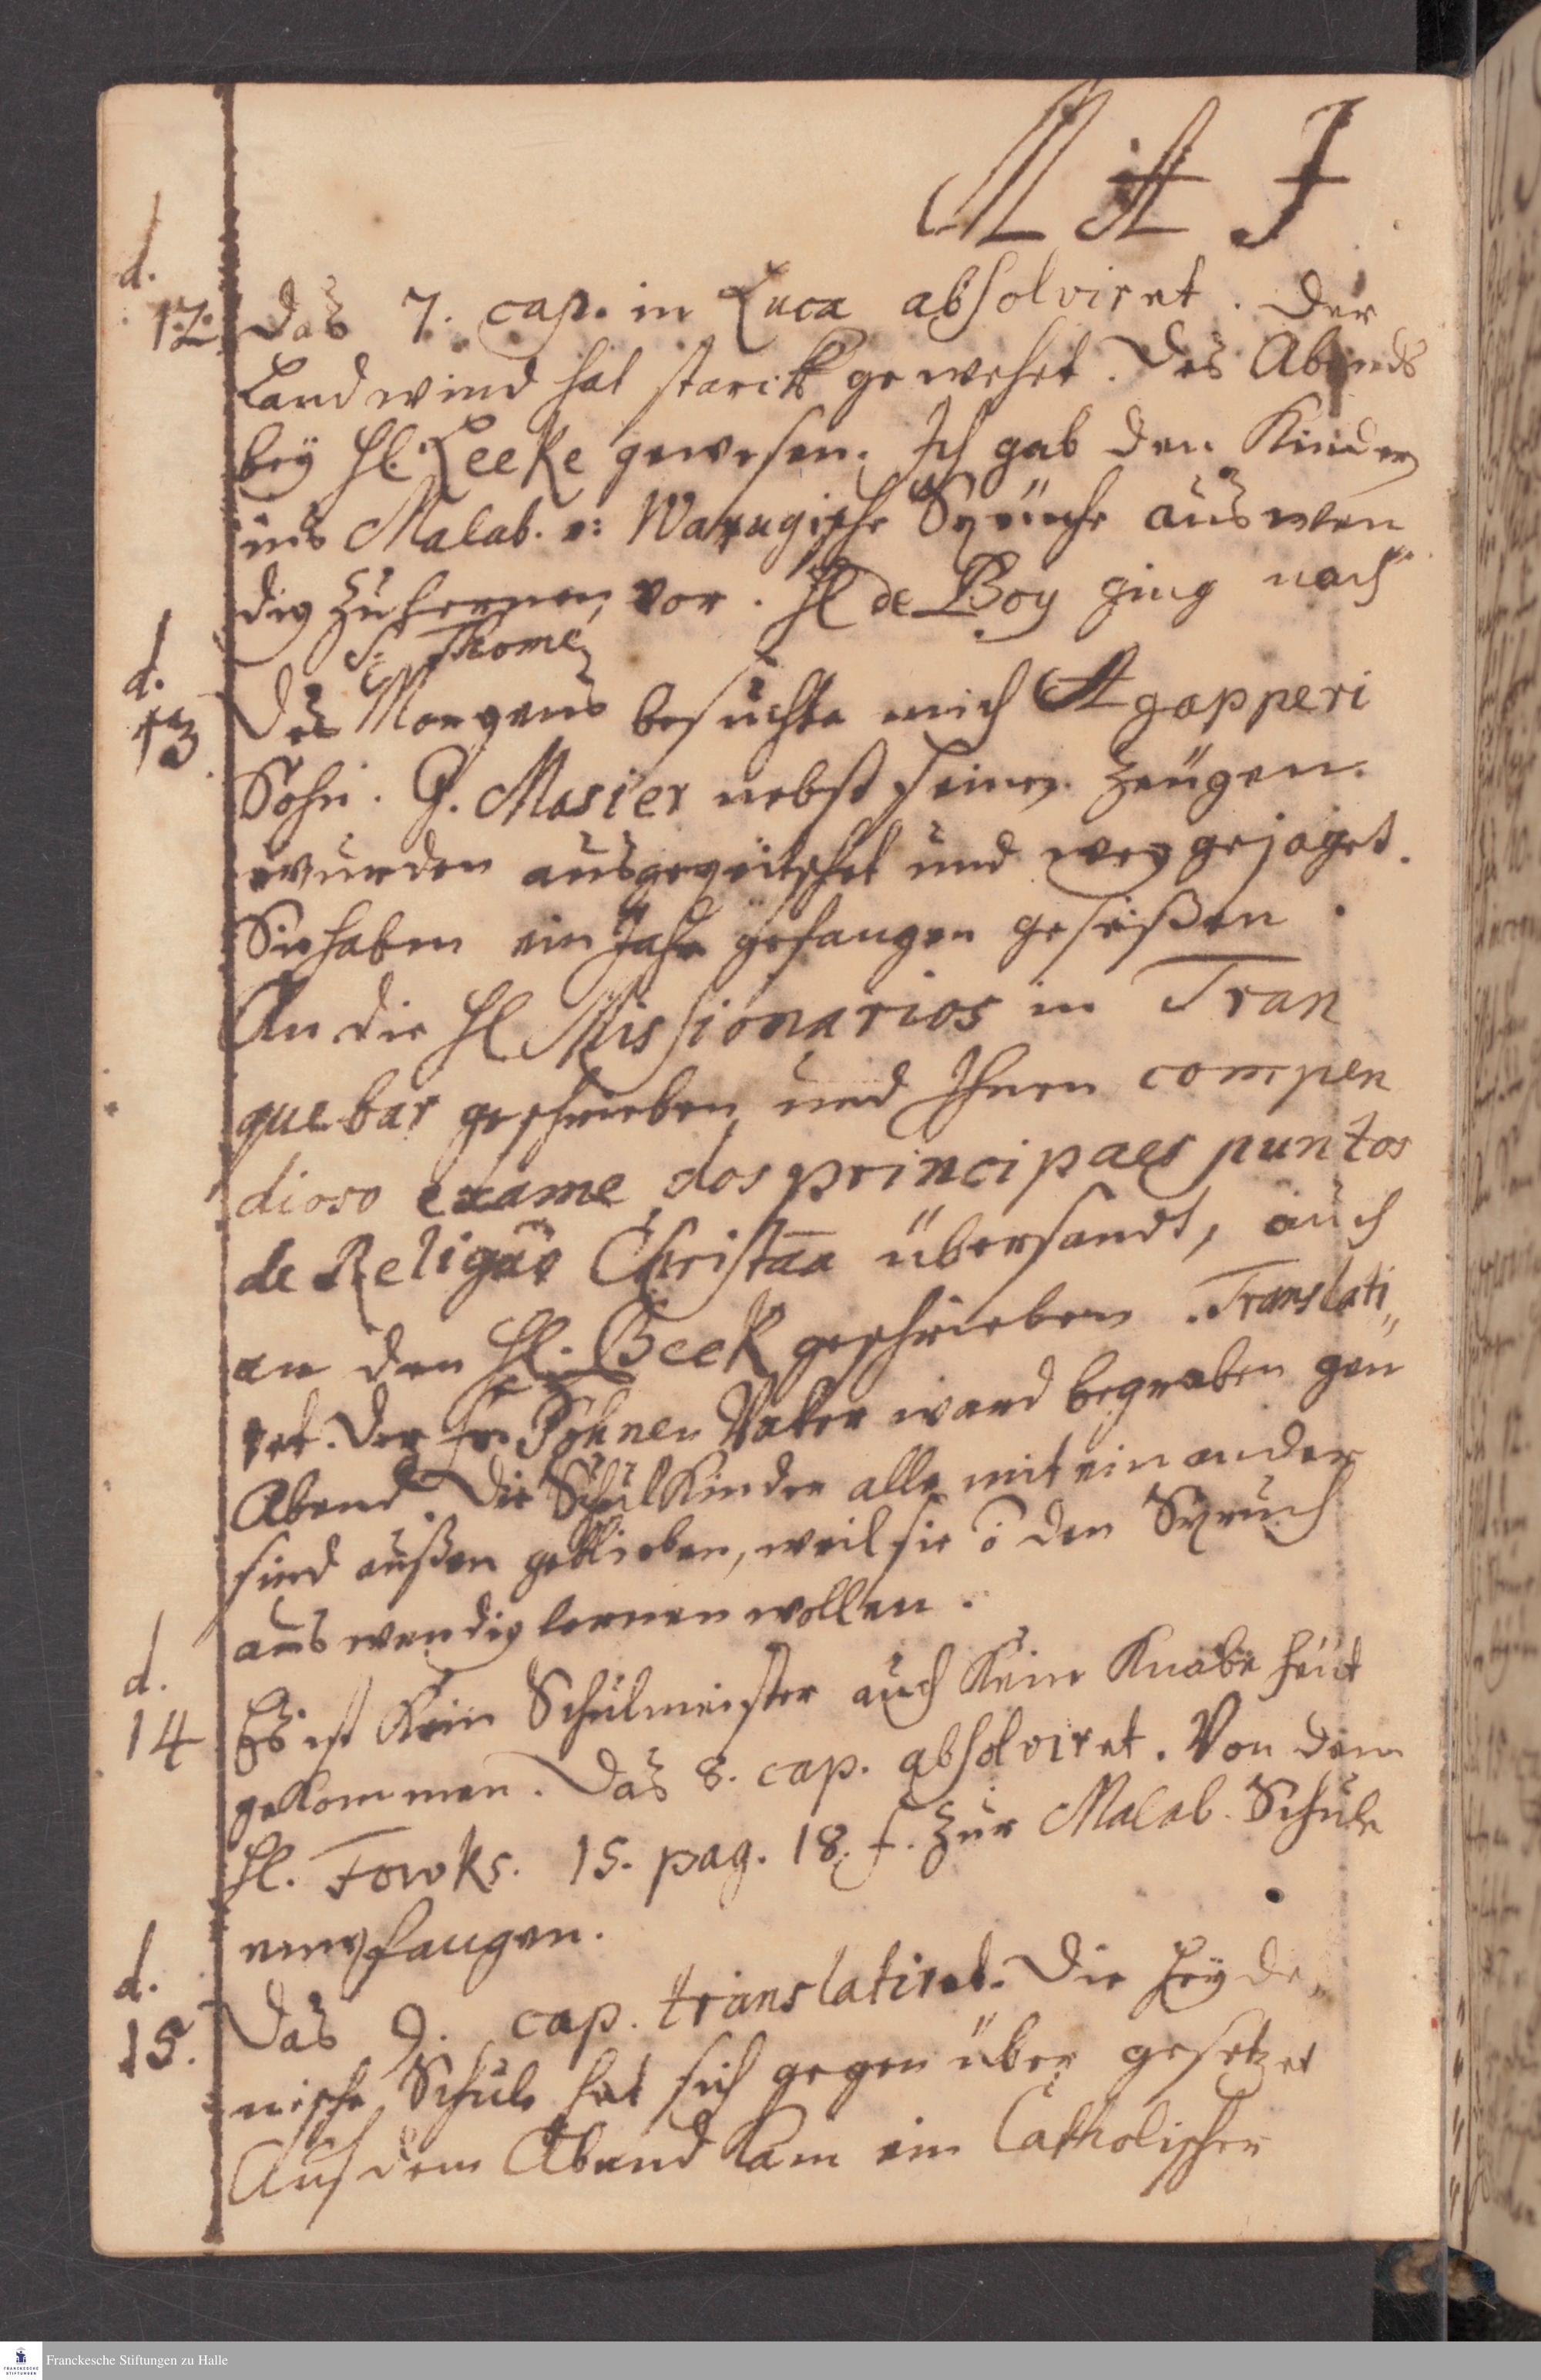 MAJ
d.
12. Das 7. cap. in Luca absolviret. Der
Landwind hat starck gewehet. Des Abends
bey H. Leeke gewesen. Ich gab den Kindern
ins Malab. u: Warugische Sprüche auswen
dig zu lernen, vor. H de Boy ging nach
St. Thome,
d.
13. Des Morgens besuchte mich Agapperi
Sohn. G. Masier nebst seinen Zeugen.
wurden ausgepeitschet und weggejaget.
Sie haben ein Jahr gefangen geseßen.
An die H. Missionarios in Tran
quebar geschrieben und Ihnen compen
dioso exame dos principaes puntos
de Religaõ Christaã übersandt, auch
an den H. Beek geschrieben. Translati„
ret. Der Fr. Söhnen Vater ward begraben gen
Abend. Die Schul Kinder alle mit einander
sind außen geblieben, weil sie õ den Spruch
auswendig lernen wollen.
d.
14 Es ist kein Schulmeister auch keine Knabe heut
gekommen. Das 8. cap. absolviret. Von dem
H. Fowks. 15. pag. 18. f. zur Malab. Schule
empfangen.
d.
15. Das 9. cap. translatiret. Die heyde„
nische Schule hat sich gegen über gesetzet
Auf dem Abend kam ein Catholischer
Franckesche Stiftungen zu Halle